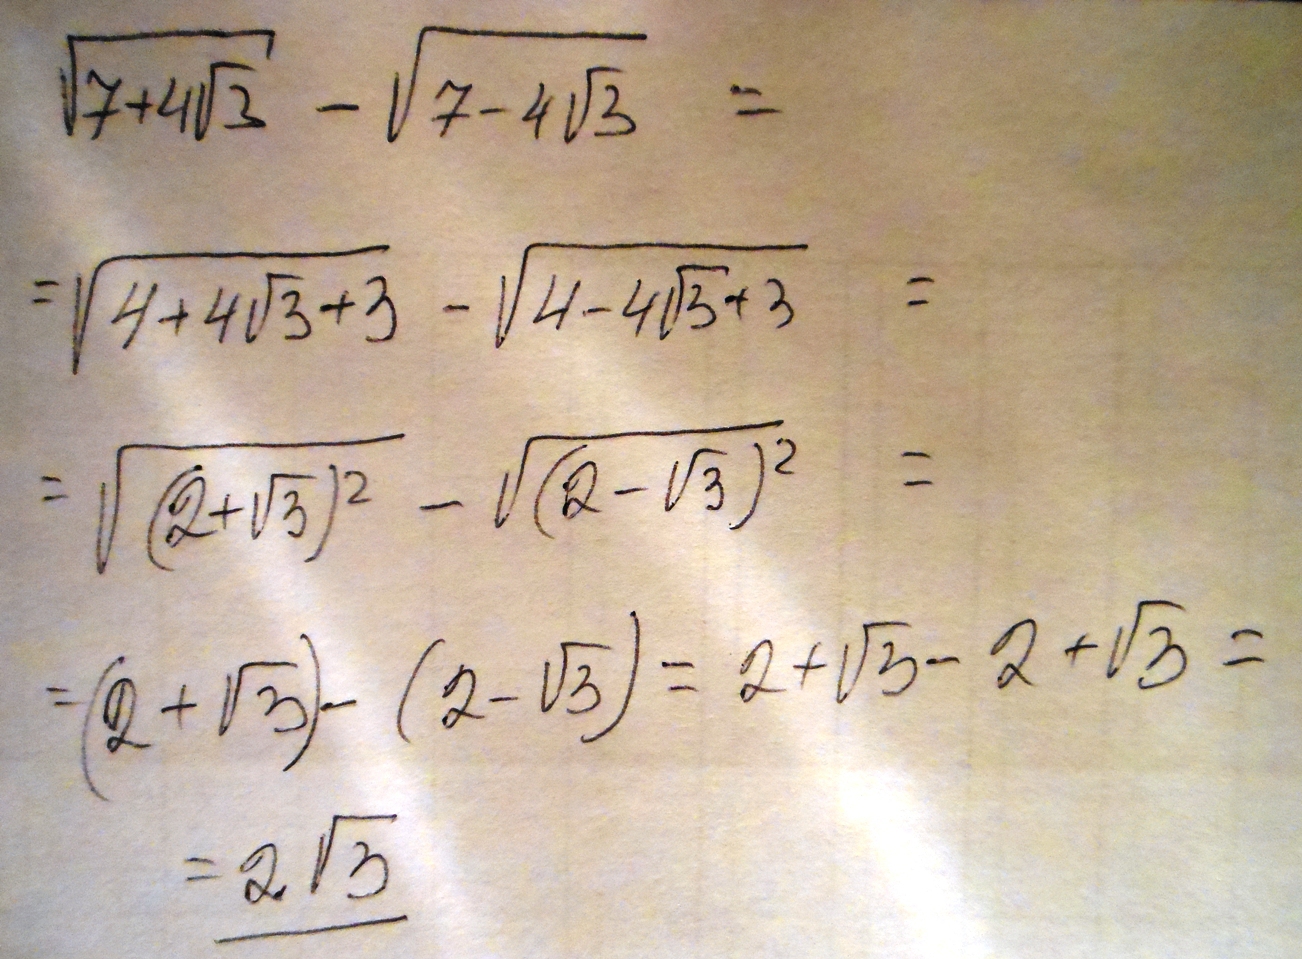 √(7+4√3) - √(7-4√3) =
= √(4+4√3+3) - √(4-4√3+3) =
= √((2+√3)²) - √((2-√3)²) =
= (2+√3) - (2-√3) = 2+√3-2+√3 =
= 2√3